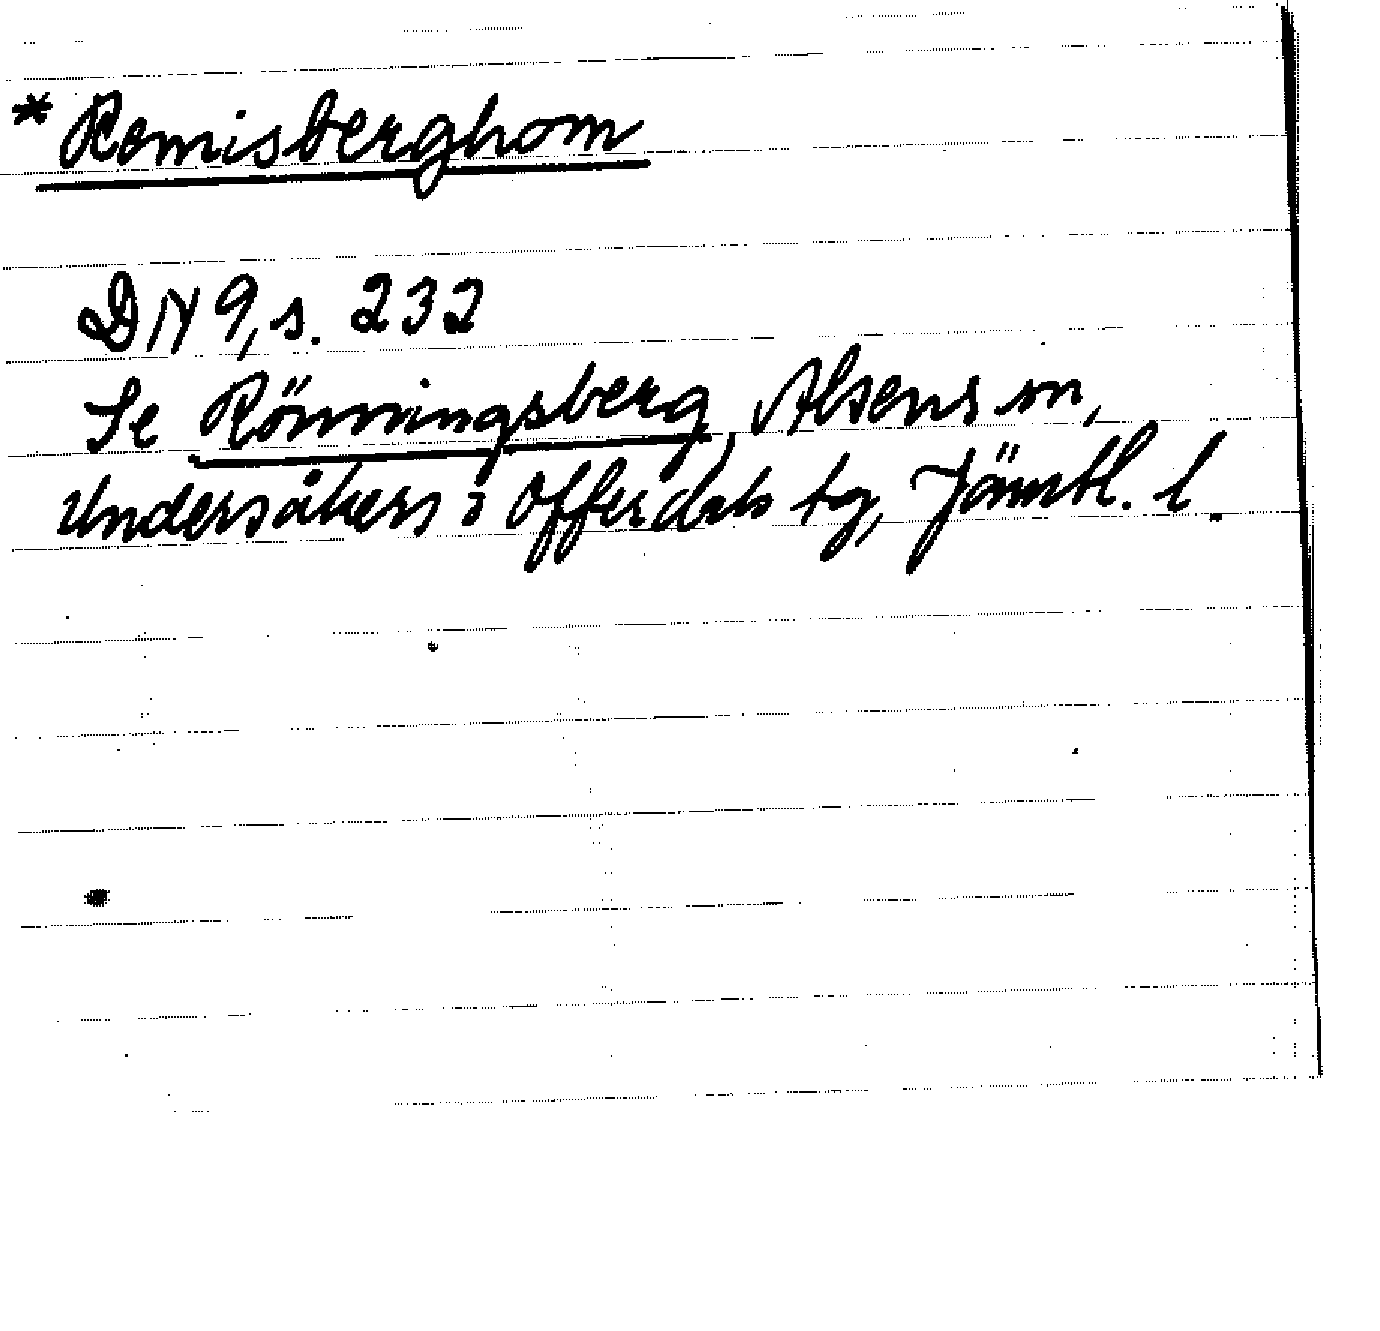 * Remisberghom
DN 9, s. 232
Se Rönningsberg, Alsens sn,
Undersåkers o Offerdals tg, Jämtl. l.